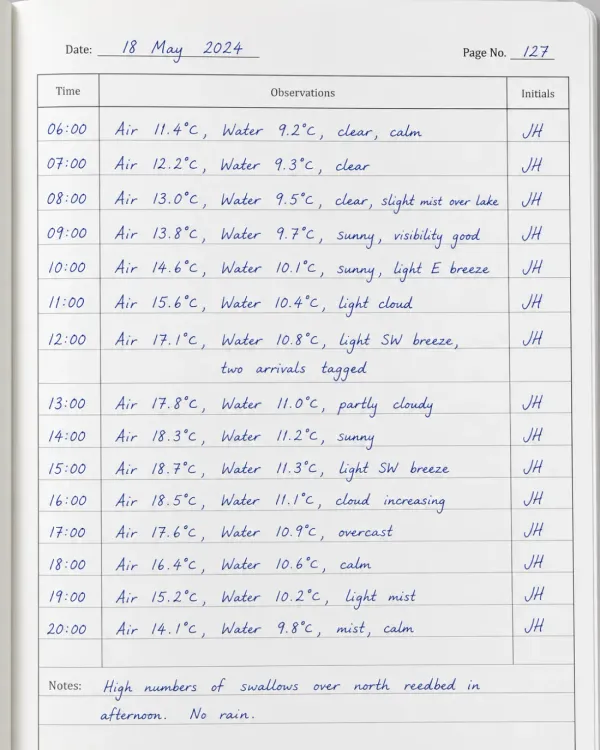 Date: 18 May 2024 Page No. 127
Time Observations Initials
06:00 Air 11.4°C, Water 9.2°C, clear, calm JH
07:00 Air 12.2°C, Water 9.3°C, clear JH
08:00 Air 13.0°C, Water 9.5°C, clear, slight mist over lake JH
09:00 Air 13.8°C, Water 9.7°C, sunny, visibility good JH
10:00 Air 14.6°C, Water 10.1°C, sunny, light E breeze JH
11:00 Air 15.6°C, Water 10.4°C, light cloud JH
12:00 Air 17.1°C, Water 10.8°C, light SW breeze, JH
two arrivals tagged
13:00 Air 17.8°C, Water 11.0°C, partly cloudy JH
14:00 Air 18.3°C, Water 11.2°C, sunny JH
15:00 Air 18.7°C, Water 11.3°C, light SW breeze JH
16:00 Air 18.5°C, Water 11.1°C, cloud increasing JH
17:00 Air 17.6°C, Water 10.9°C, overcast JH
18:00 Air 16.4°C, Water 10.6°C, calm JH
19:00 Air 15.2°C, Water 10.2°C, light mist JH
20:00 Air 14.1°C, Water 9.8°C, mist, calm JH
Notes: High numbers of swallows over north reedbed in
afternoon. No rain.